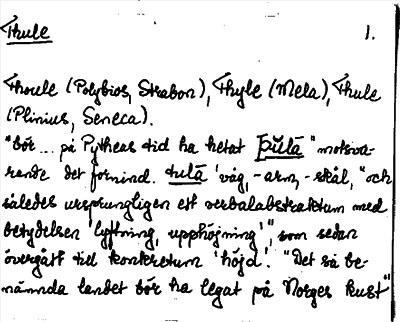 Thule 1.
Thoule (Polybios, Strabon), Thyle (Mela), Thule
(Plinius, Seneca).
"bör... på Pytheas tid ha hetat þūlā "motsva-
rande det fornind. tulā 'våg, -arm, -skål, "och
således ursprungligen ett verbalabstraktum med
betydelsen 'lyftning, upphöjning'", som sedan
övergått till konkretum 'höjd'. "Det så be-
nämnda landet bör ha legat på Norges kust"